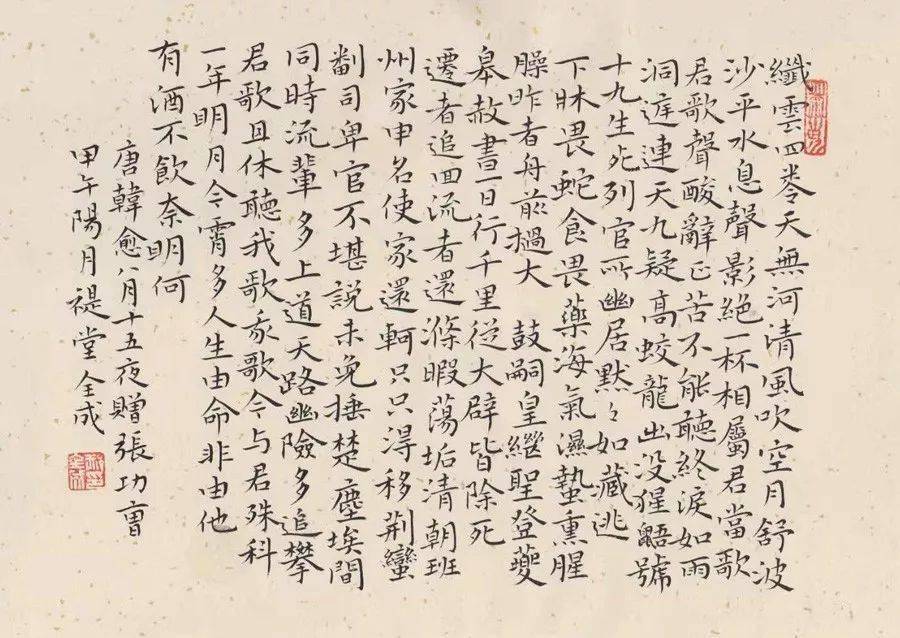 纖雲四卷天無河清風吹空月舒波
沙平水息聲影絕一杯相屬君當歌
君歌聲酸辭正苦不能聽終淚如雨
洞庭連天九疑高蛟龍出没猩鼯號
十九生死列官所幽居默々如藏逃
下牀畏蛇食畏藥海氣濕蟄熏腥
臊昨者舟前撾大鼓嗣皇繼聖登夔
皋赦晝一日行千里從大辟皆除死
遷者追回流者還滌暇蕩垢清朝班
州家申名使家還軻只只淂移荆蠻
劚司卑官不堪說未免捶楚塵埃間
同時流輩多上道天路幽險多追攀
君歌且休聽我歌我歌今与君殊科
一年明月今霄多人生由命非由他
有酒不飲奈明何
唐韓愈八月十五夜贈張功曹
甲午陽月禔堂全成